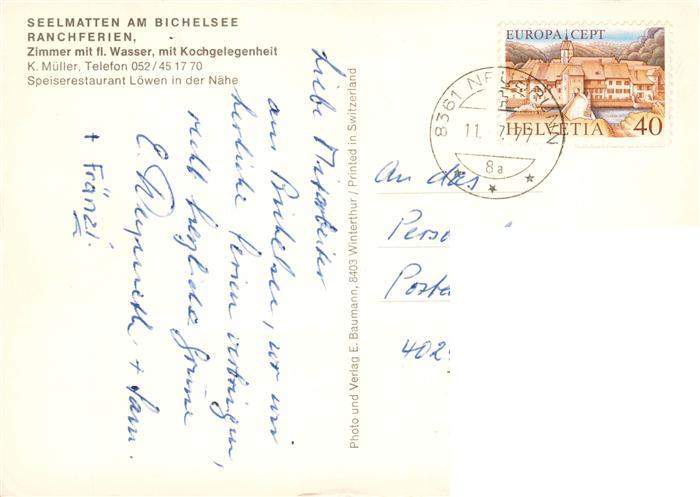 SEELMATTEN AM BICHELSEE
RANCHFERIEN,
Zimmer mit fl. Wasser, mit Kochgelegenheit
K. Müller, Telefon 052/45 17 70
Speiserestaurant Löwen in der Nähe
Liebe Mitarbeiter
aus Bichelsee, wo wir
herrliche Ferien verbringen,
recht herzliche Grüsse
E. + Fam.
+ Fränzi.
Photo und Verlag E. Baumann, 8403 Winterthur / Printed in Switzerland
EUROPA CEPT
HELVETIA 40
8361
11. 7. 77
8a
An das
Perso
Poste
402